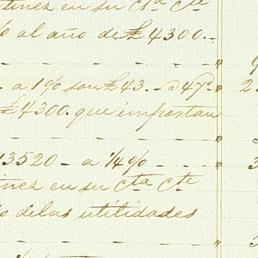 tinez en su Cta Cte
% al año de £4300.-
- a 1% son £43. - a 47 ps "
£4300. que importan
13520 - a ¼% - - - - "
tinez en su Cta Cte
% de las utilidades